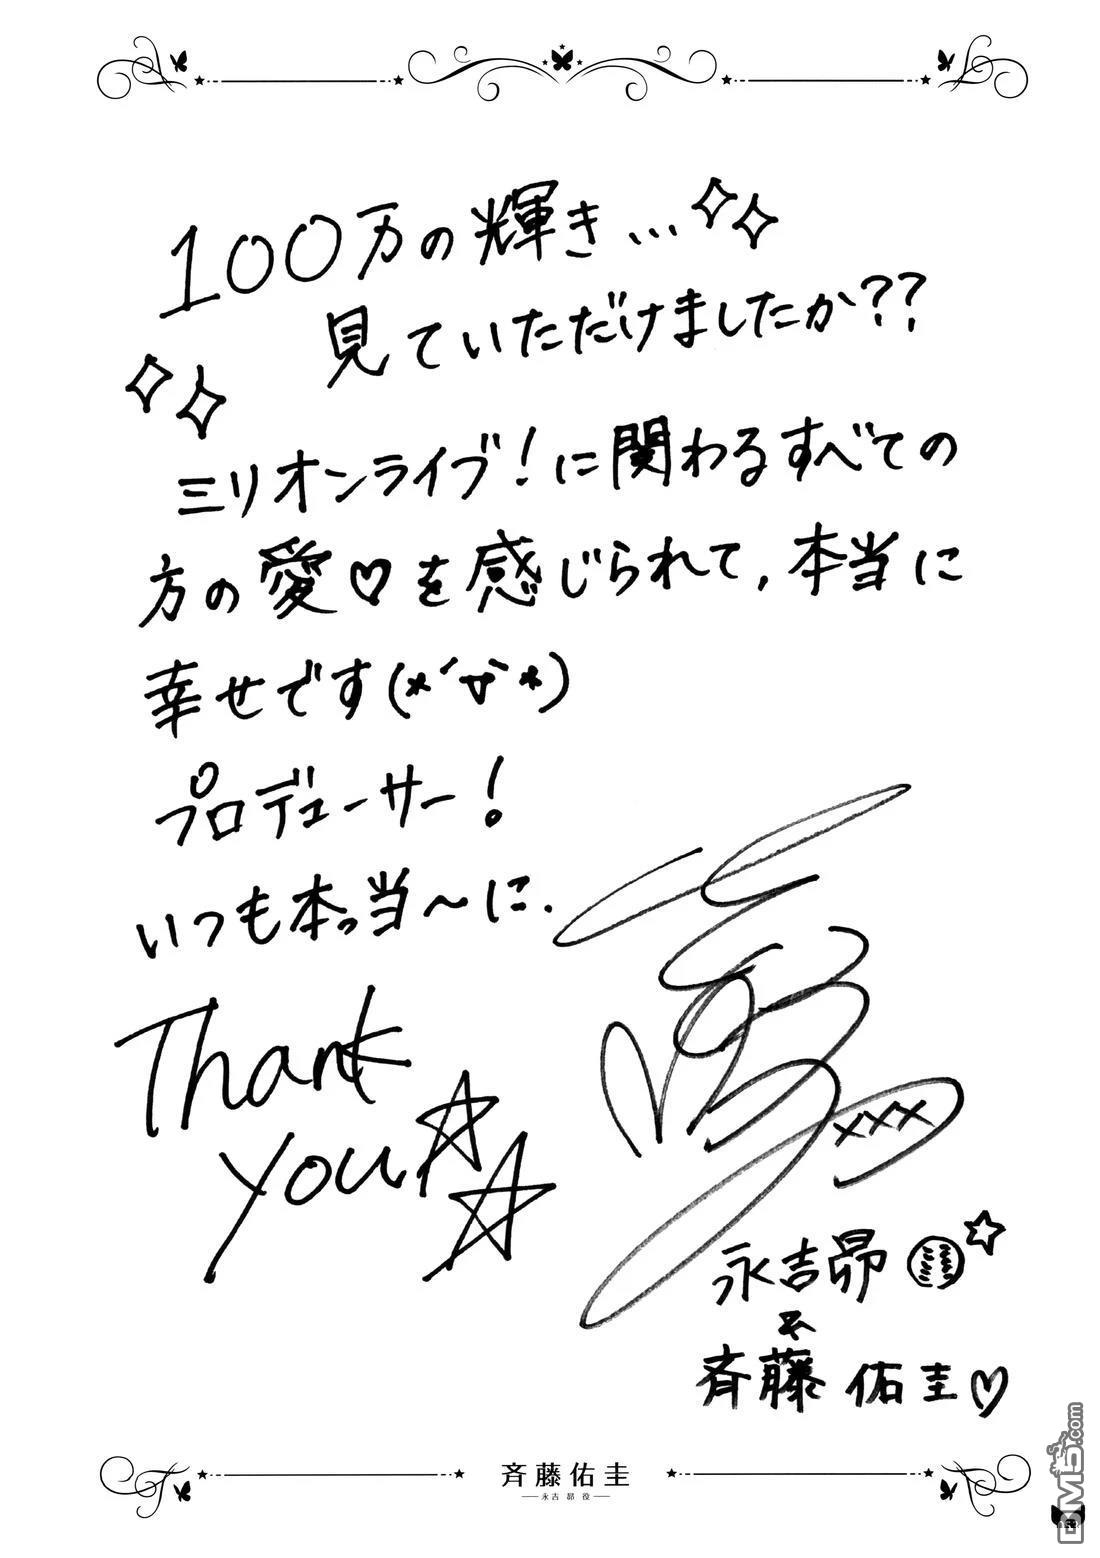 100万の輝き...
見ていただけましたか??
ミリオンライブ!に関わるすべての
方の愛♡を感じられて,本当に
幸せです(*´▽`*)
プロデューサー!
いつも本っ当〜に.
Thank
you☆☆
xxx
永吉昴
&
斉藤 佑圭♡
斉藤佑圭
永吉 昴 役
DM5.com